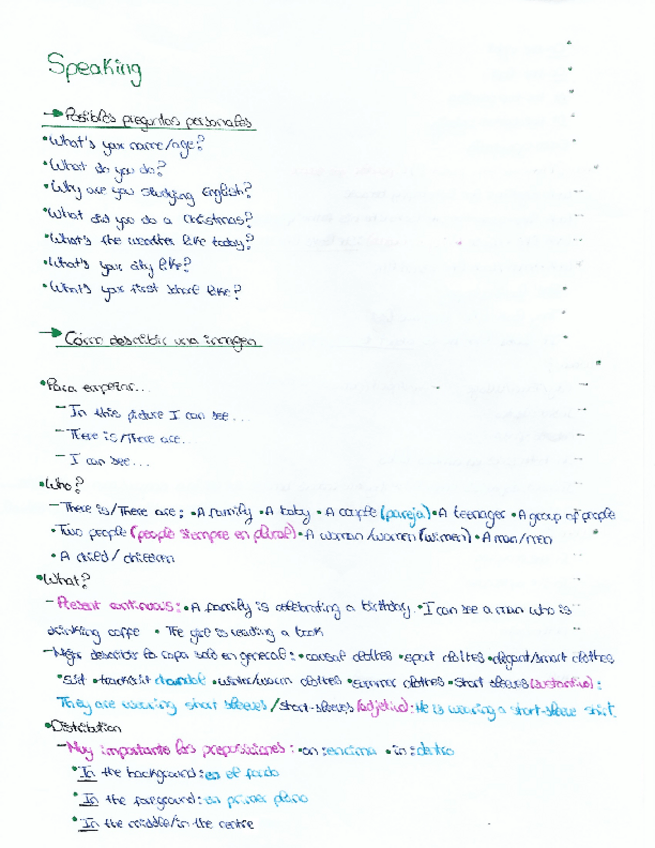 Speaking
→ Posibles preguntas personales
• What's your name/age?
• What do you do?
• Why are you studying English?
• What did you do a Christmas?
• What's the weather like today?
• What's your city like?
• What's your first school like?
→ Cómo describir una imagen
• Para empezar...
- In this picture I can see...
- There is/There are...
- I can see...
• Who?
- There is/There are: • A family • A baby • A couple (pareja) • A teenager • A group of people
• Two people (people siempre en plural) • A woman/women (wimen) • A man/men
• A child/children
• What?
- Present continuous: • A family is celebrating a birthday. • I can see a man who is
drinking coffe • The girl is reading a book
- Mejor describir la ropa solo en general: • casual clothes • sport clothes • elegant/smart clothes
• Suit • tracksuit chandal • winter/warm clothes • summer clothes • short sleeves (sustantivo):
They are wearing short sleeves/short-sleeves (adjetivo): He is wearing a short-sleeve shirt.
• Distribution
- Muy importante las preposiciones: • on: encima • in: dentro
• In the background: en el fondo
• In the forground: en primer plano
• In the middle/in the centre